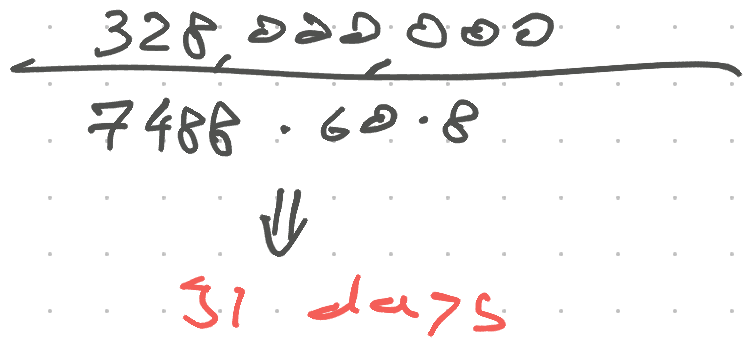 328,000,000
7488 · 60 · 8
⇓
31 days